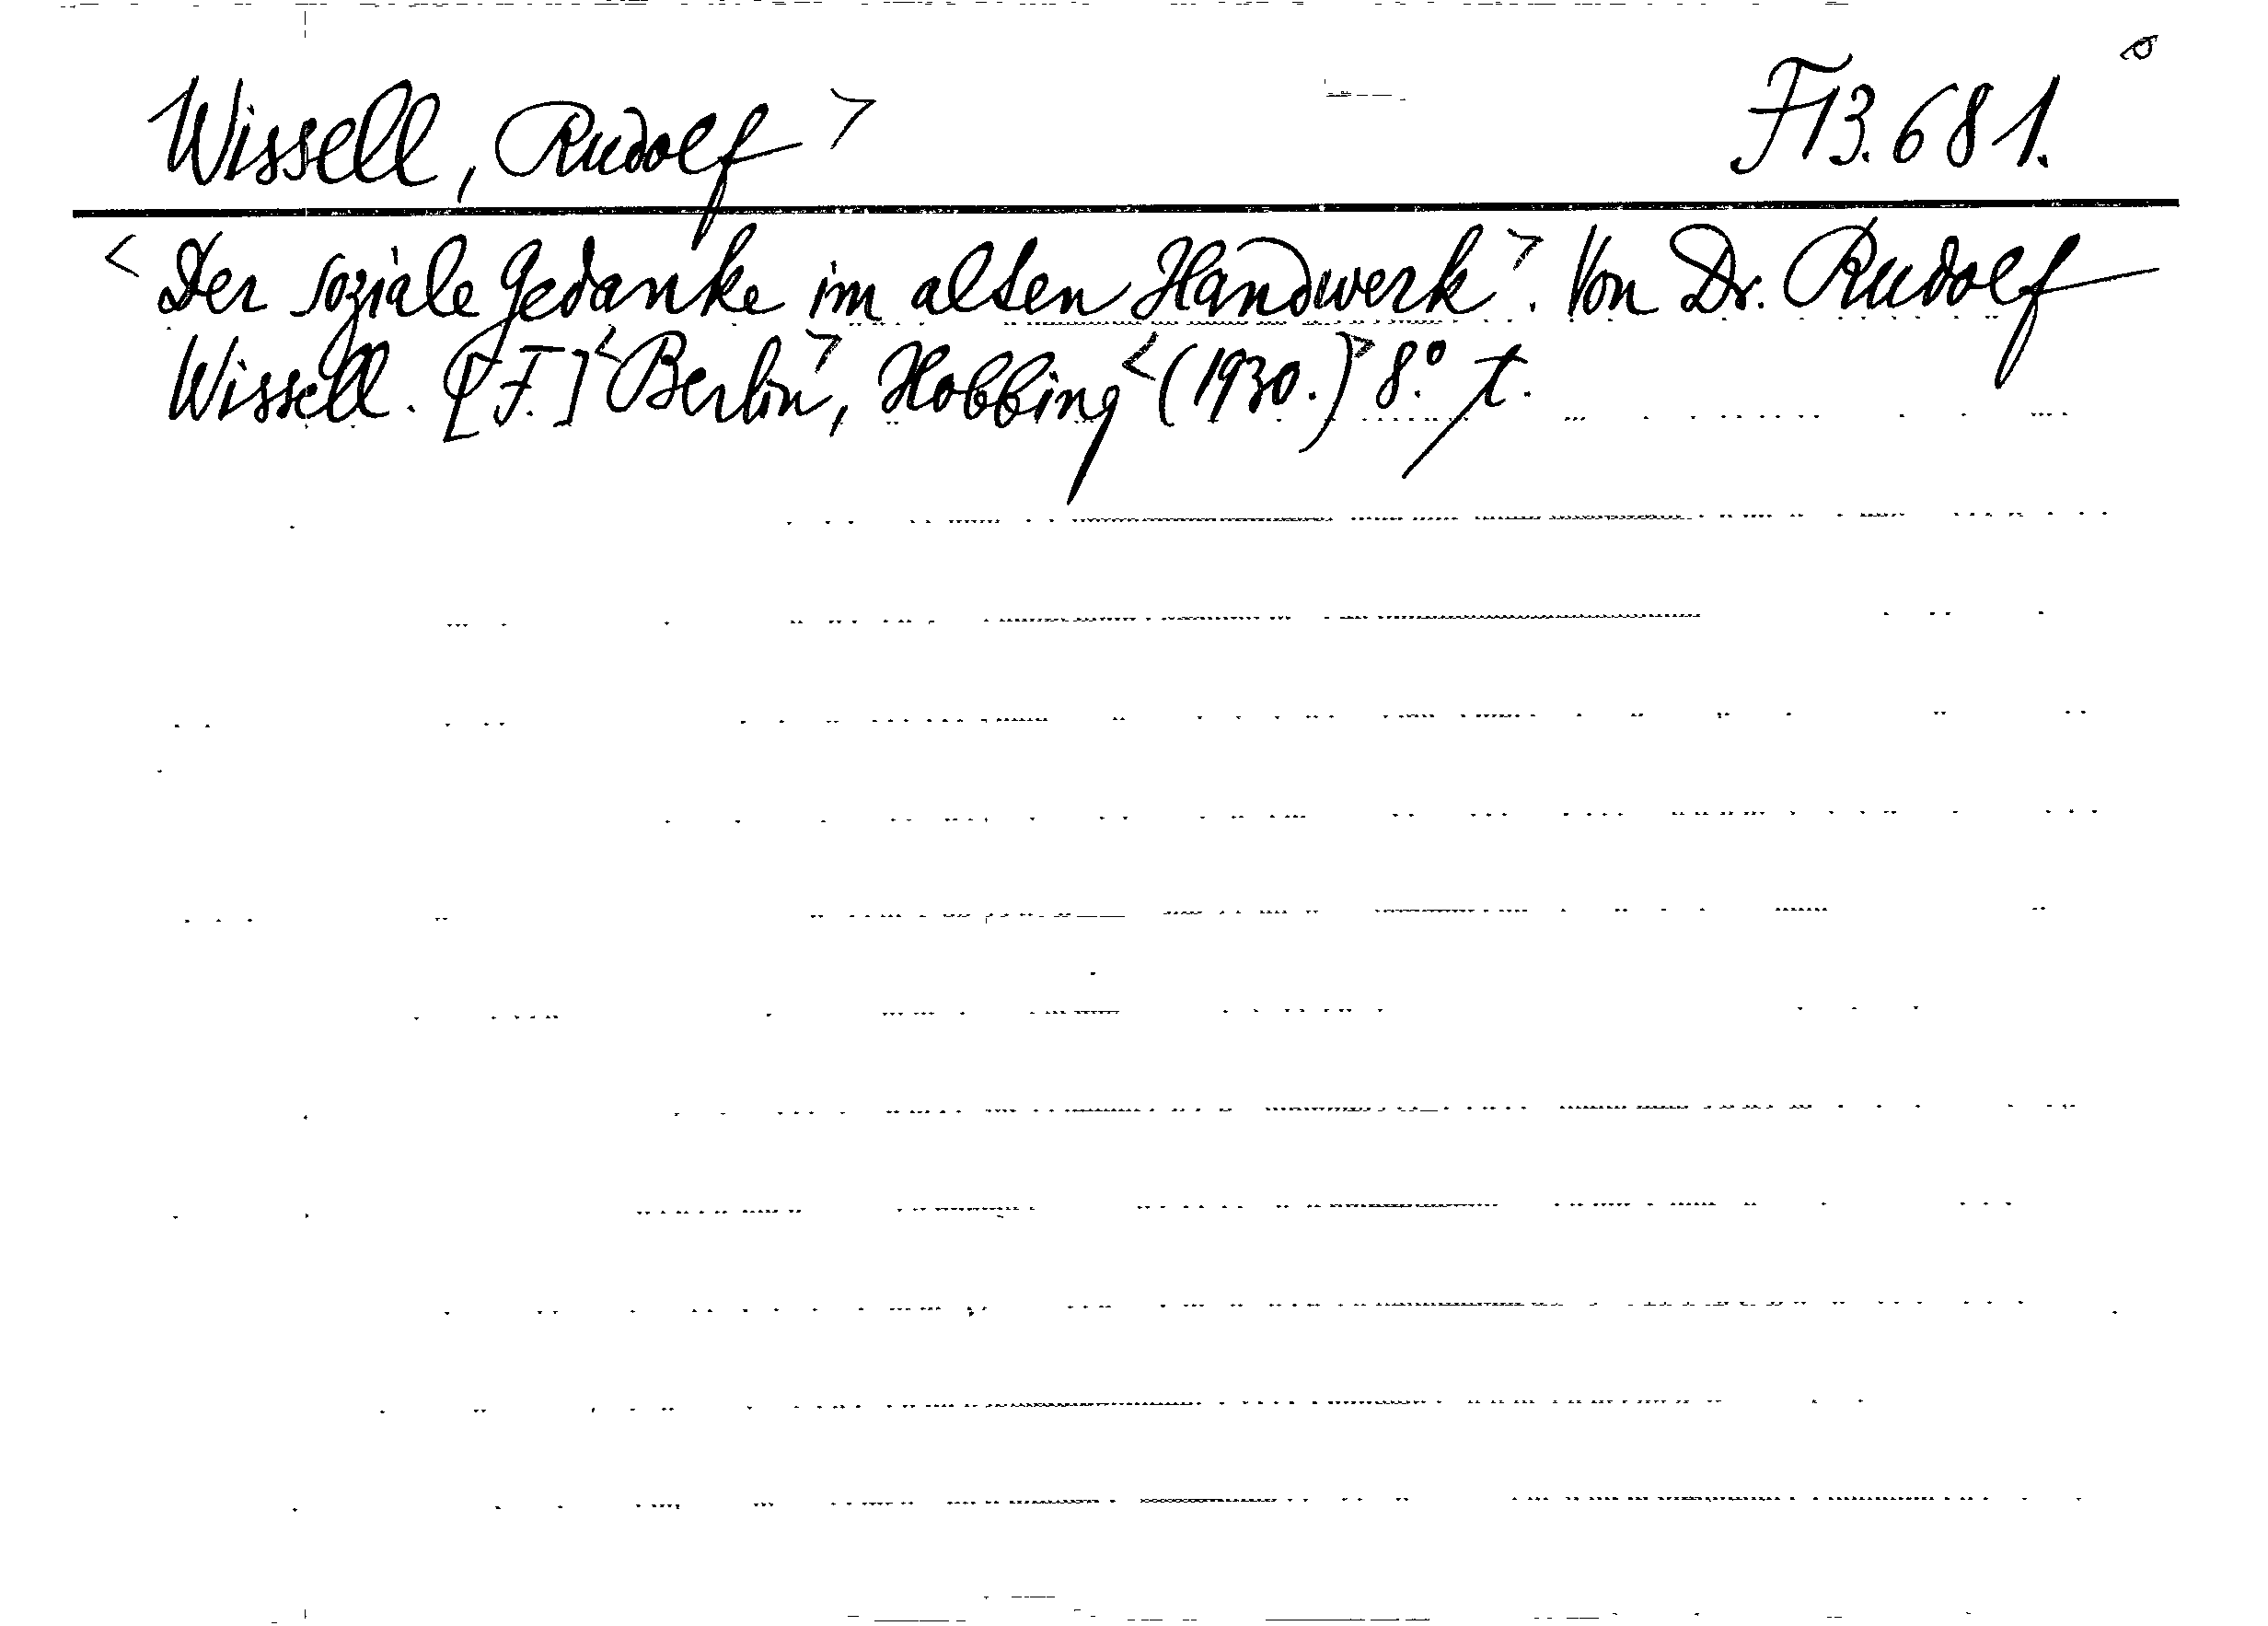 Wissell, Rudolf> F13.681.
<Der soziale Gedanke im alten Handwerk>. Von Dr. Rudolf
Wissell. [F.] <Berlin>, Hobbing <(1930.)> 8.° t.